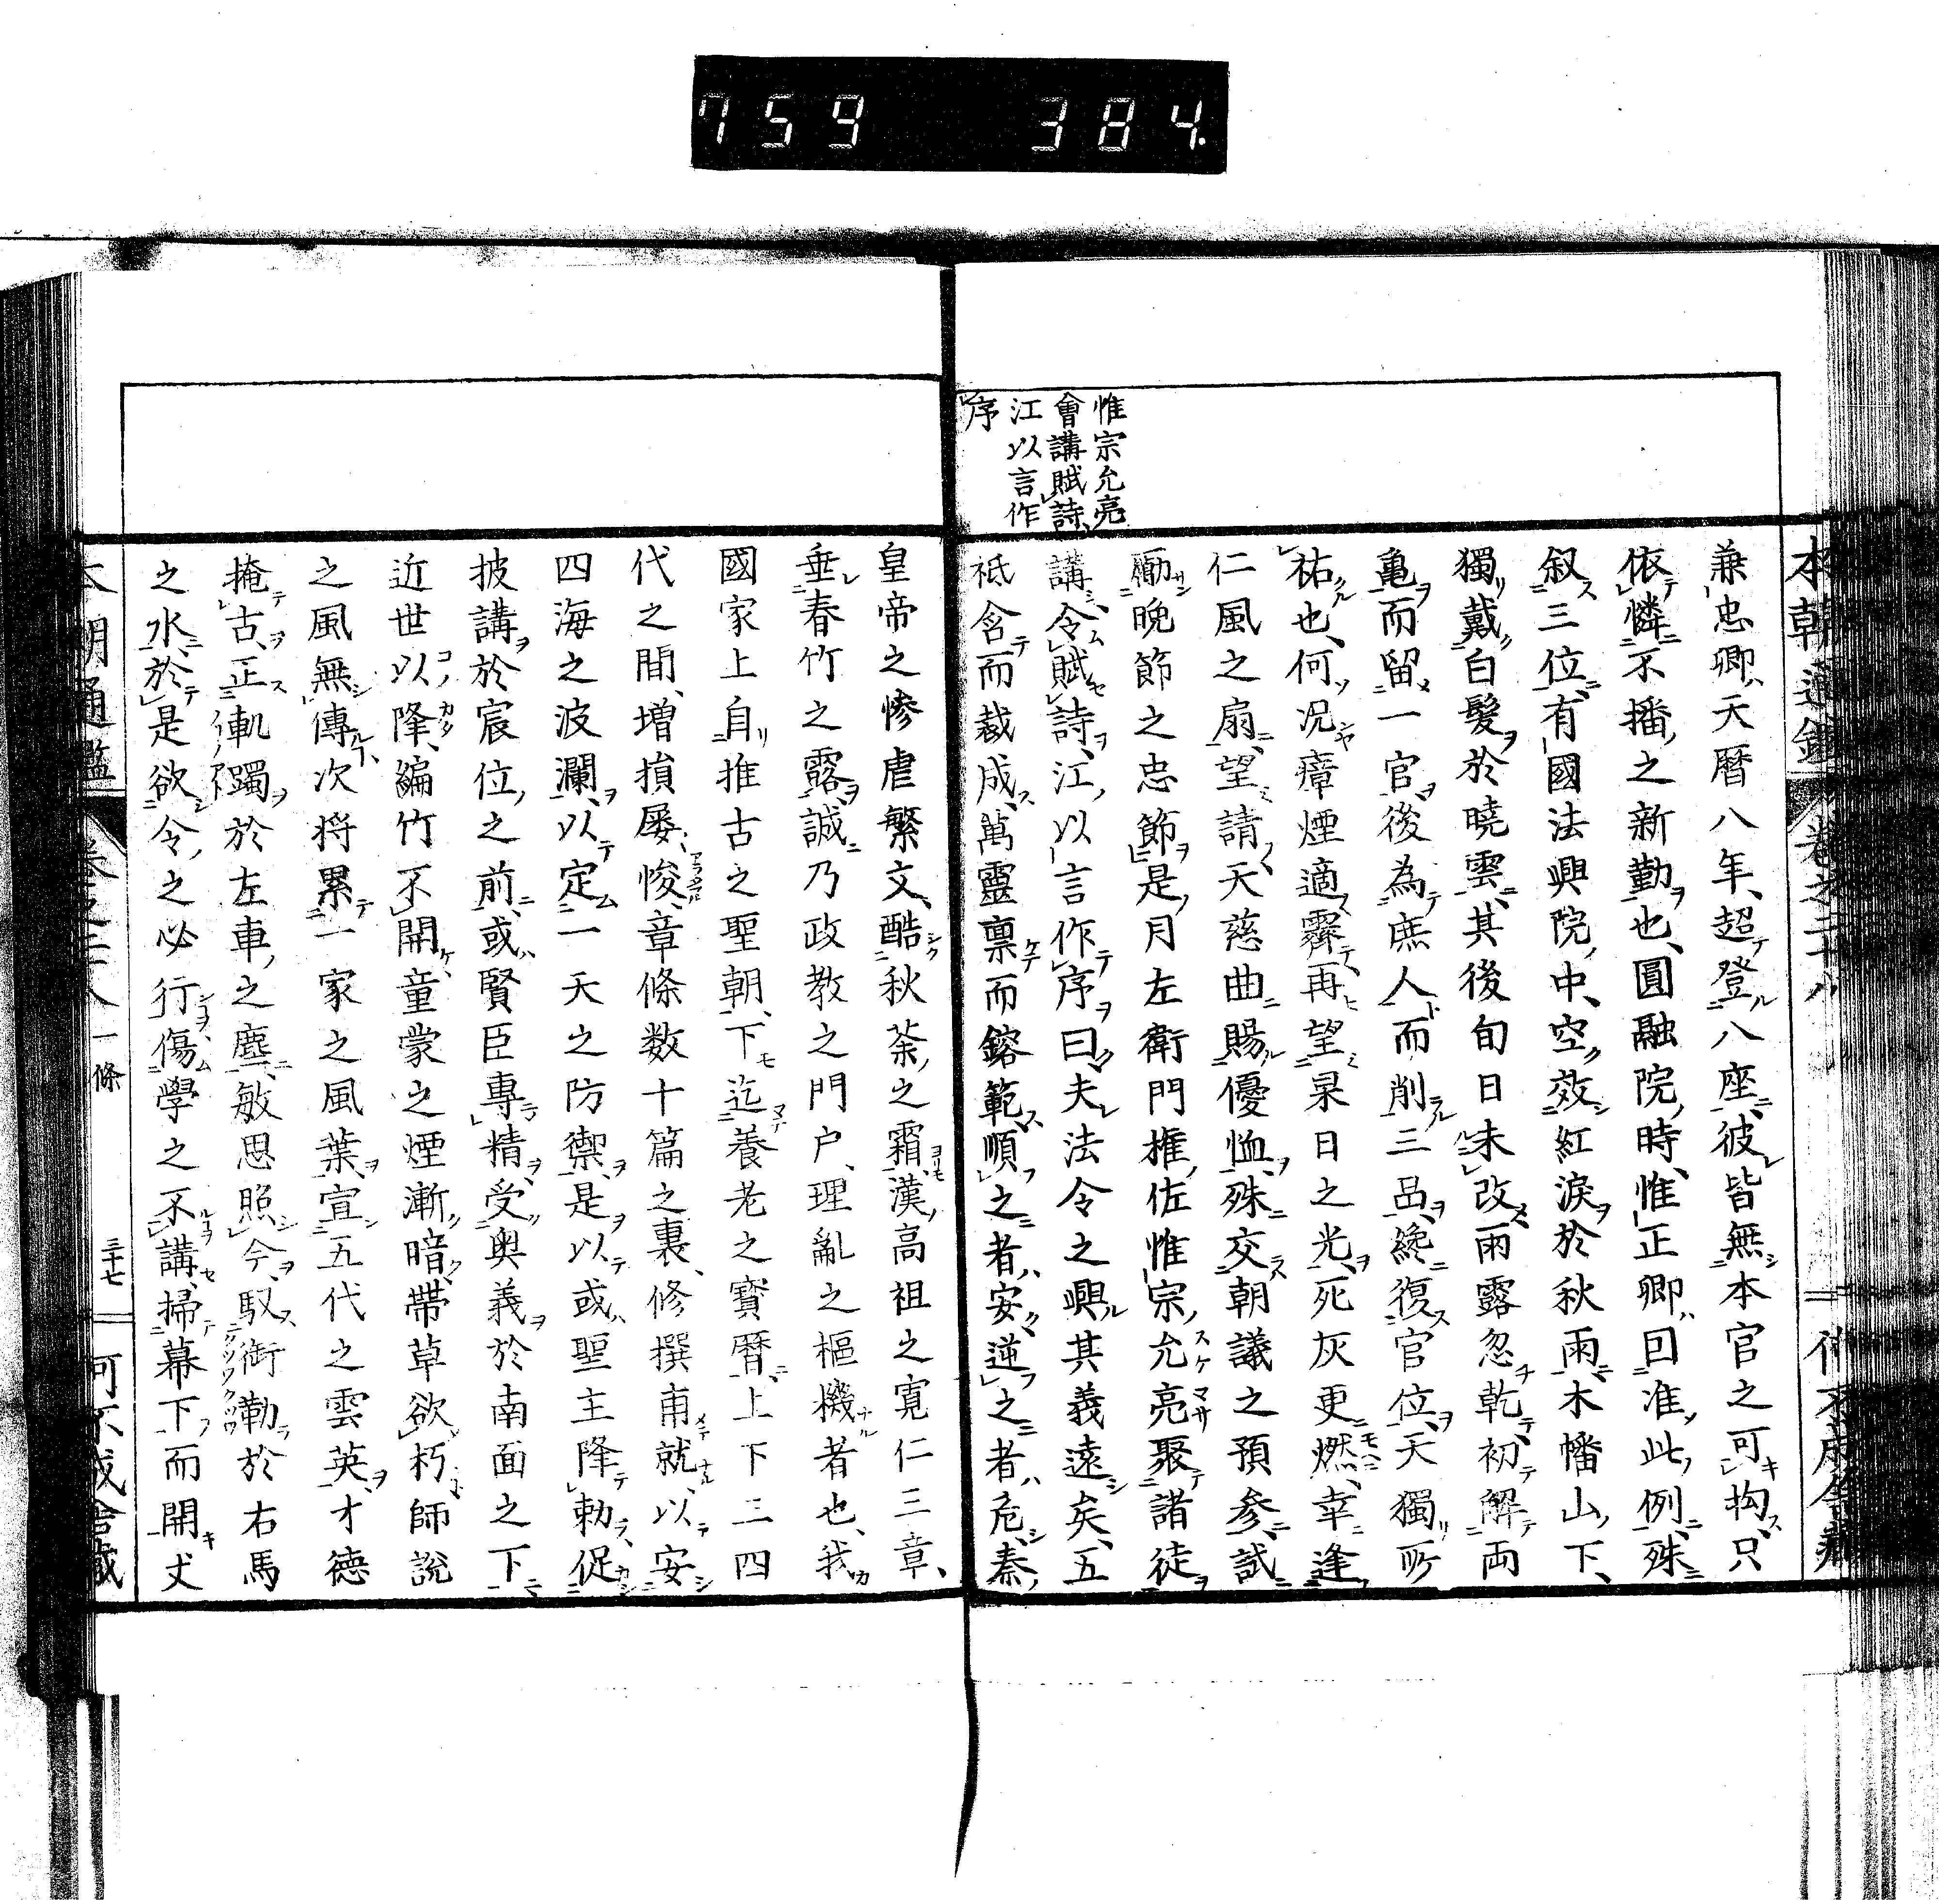 759 384.
本朝通鑑 卷之二十八
惟宗允亮
會講賦詩
江以言作
序
兼忠卿天暦八年超登八座彼皆無本官之可拘只
依憐不播之新勤也圓融院時惟正卿回准此例殊
叙三位有國法興院中空效紅淚於秋雨木幡山下
獨戴白髮於曉雲其後旬日未改雨露忽乾初解両
亀而留一官後為庶人而削三品纔復官位天獨所
祐也何況瘴煙適霽再望杲日之光死灰更燃幸逢
仁風之扇望請天慈曲賜優恤殊交朝議之預参試
勵晩節之忠節是月左衛門権佐惟宗允亮聚諸徒
講令賦詩江以言作序曰夫法令之興其義遠矣五
祇含而裁成萬靈禀而鎔範順之者安逆之者危秦
皇帝之惨虐繁文酷秋荼之霜漢高祖之寛仁三章
垂春竹之露誠乃政教之門户理亂之樞機者也我
國家上自推古之聖朝下迄養老之寳暦上下三四
代之間増損屡悛章條数十篇之裏修撰甫就以安
四海之波瀾以定一天之防禦是以或聖主降勅促
披講於宸位之前或賢臣專精受奥義於南面之下
近世以降編竹不開童蒙之煙漸暗帶草欲朽師説
之風無傳次将累一家之風葉宣五代之雲英才德
掩古正軌躅於左車之塵敏思照今馭銜勒於右馬
之水於是欲令之必行傷學之不講掃幕下而開丈
本朝通鑑 卷之二十八 一條 三十七